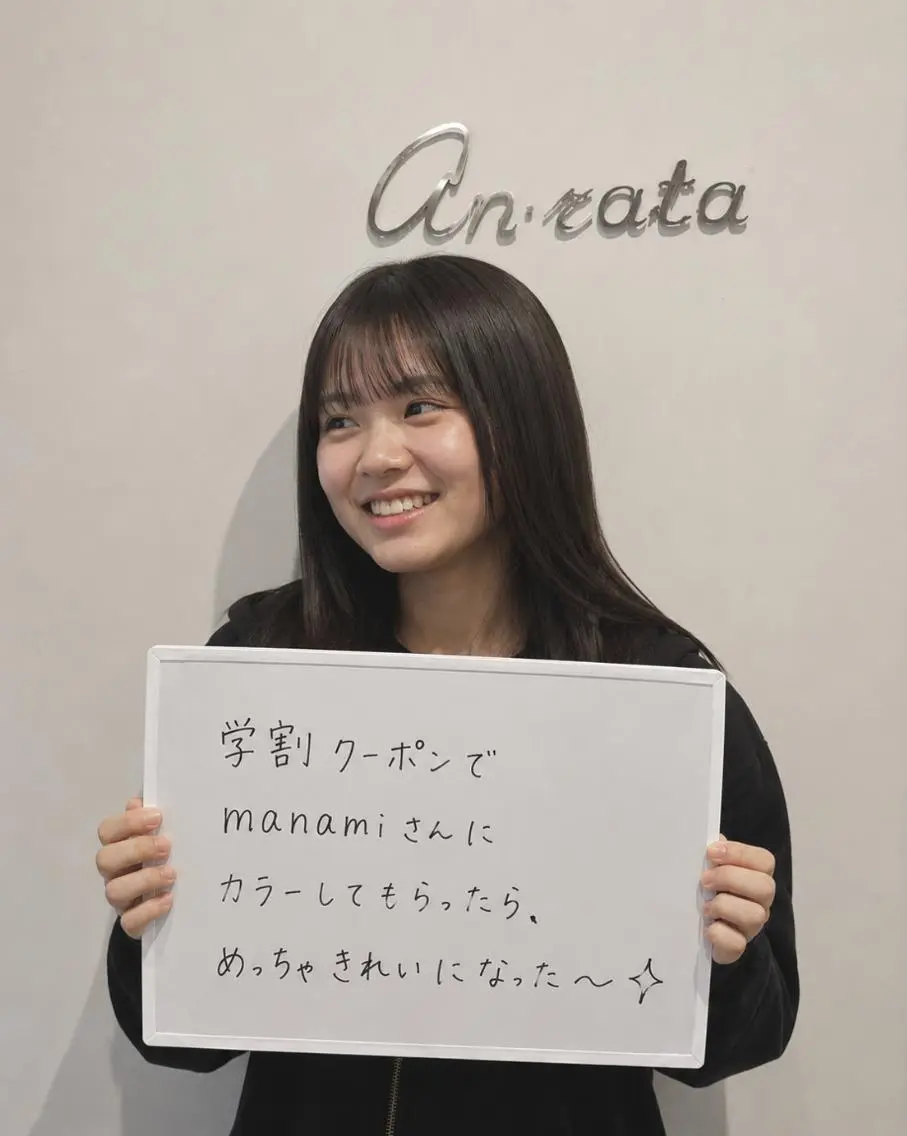 an・rata
学割クーポンで
manamiさんに
カラーしてもらったら、
めっちゃきれいになった〜✧